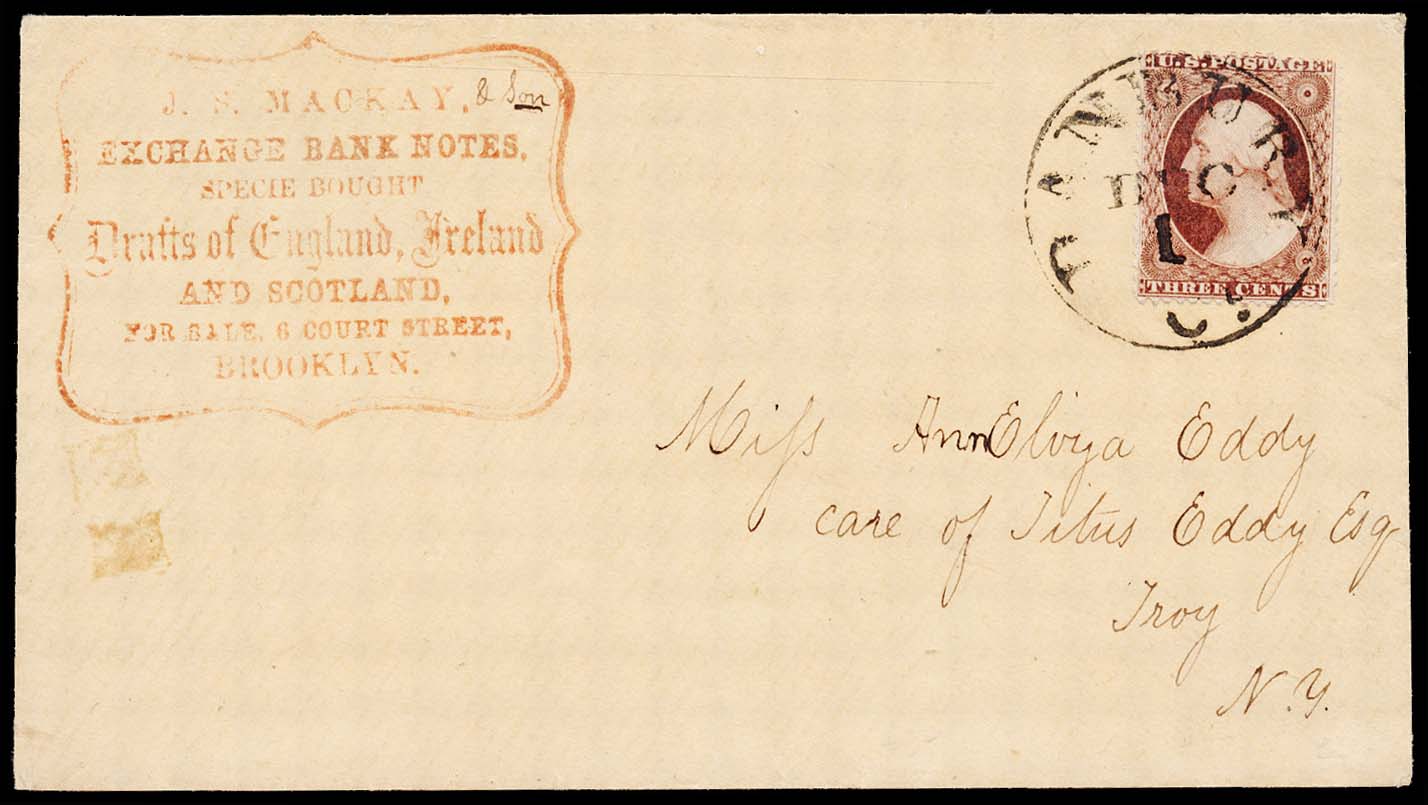 J. S. MACKAY, & Son
EXCHANGE BANK NOTES,
SPECIE BOUGHT
Drafts of England, Ireland
AND SCOTLAND,
FOR SALE, 6 COURT STREET,
BROOKLYN.
U.S. POSTAGE
THREE CENTS
DANBURY
DEC
1
Ct.
Miss Ann Elvija Eddy
care of Titus Eddy Esq
Troy
N.Y.